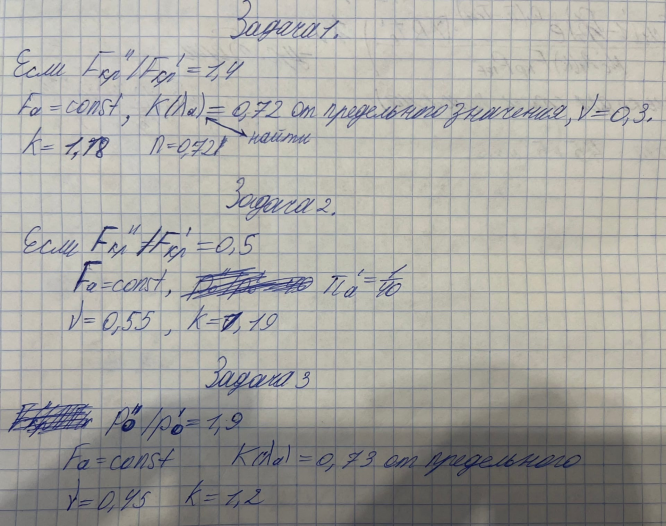 Задача 1.
Если Fкр"/Fкр' = 1,4
Fa = const, K(λa) = 0,72 от предельного значения, ν = 0,3.
найти
k = 1,18 n = 0,72
Задача 2.
Если Fкр"/Fкр' = 0,5
Fa = const, πa' = 1/40
ν = 0,55, k = 1,19
Задача 3
p0"/p0' = 1,9
Fa = const K(λa) = 0,73 от предельного
ν = 0,45 k = 1,2